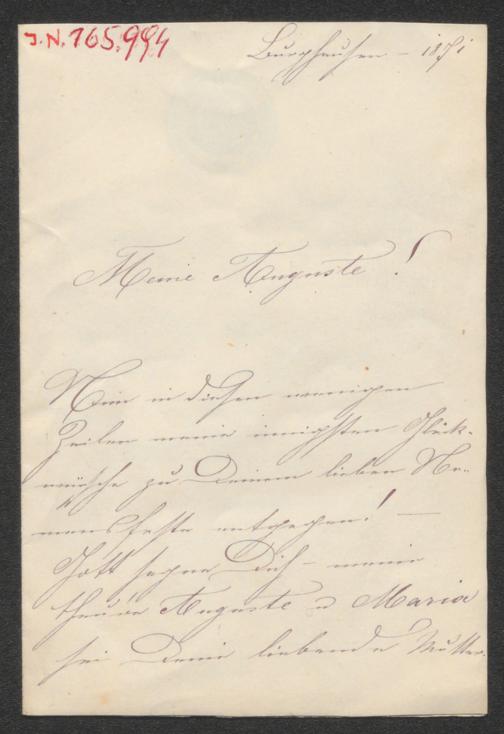 J.N. 165.994
Burghausen - 1871
Meine Auguste!
Nim in diesen wenigen
Zeilen meine innigsten Glück-
wünsche zu Deinem lieben Na-
mensfeste entgegen! -
Gott segne Dich - meine
theure Auguste u Maria
sei Deine liebende Mutter.